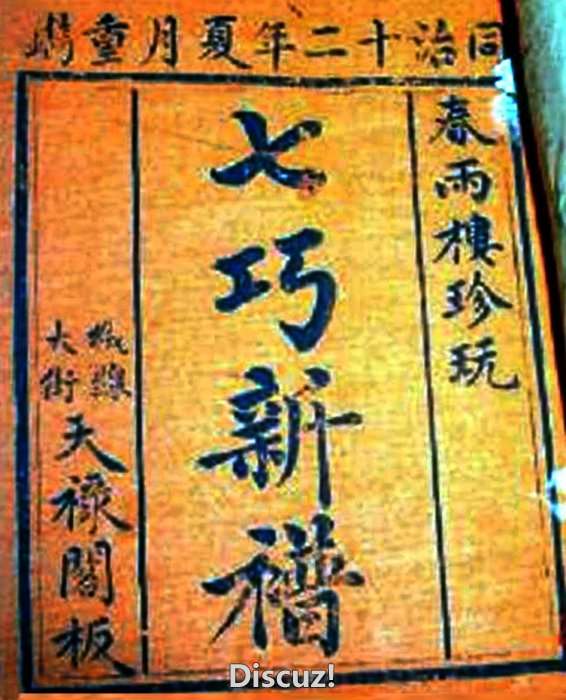 同治十二年夏月重鐫
春雨樓珍玩
七巧新譜
大街
天祿閣板
Discuz!